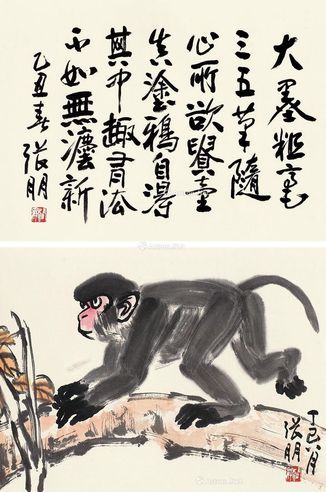 大墨粗毫
三五筆隨
心所欲童
真塗鴉自得
其中趣有法
不如無灋新
乙丑春張朋
丁巳八月
張朋